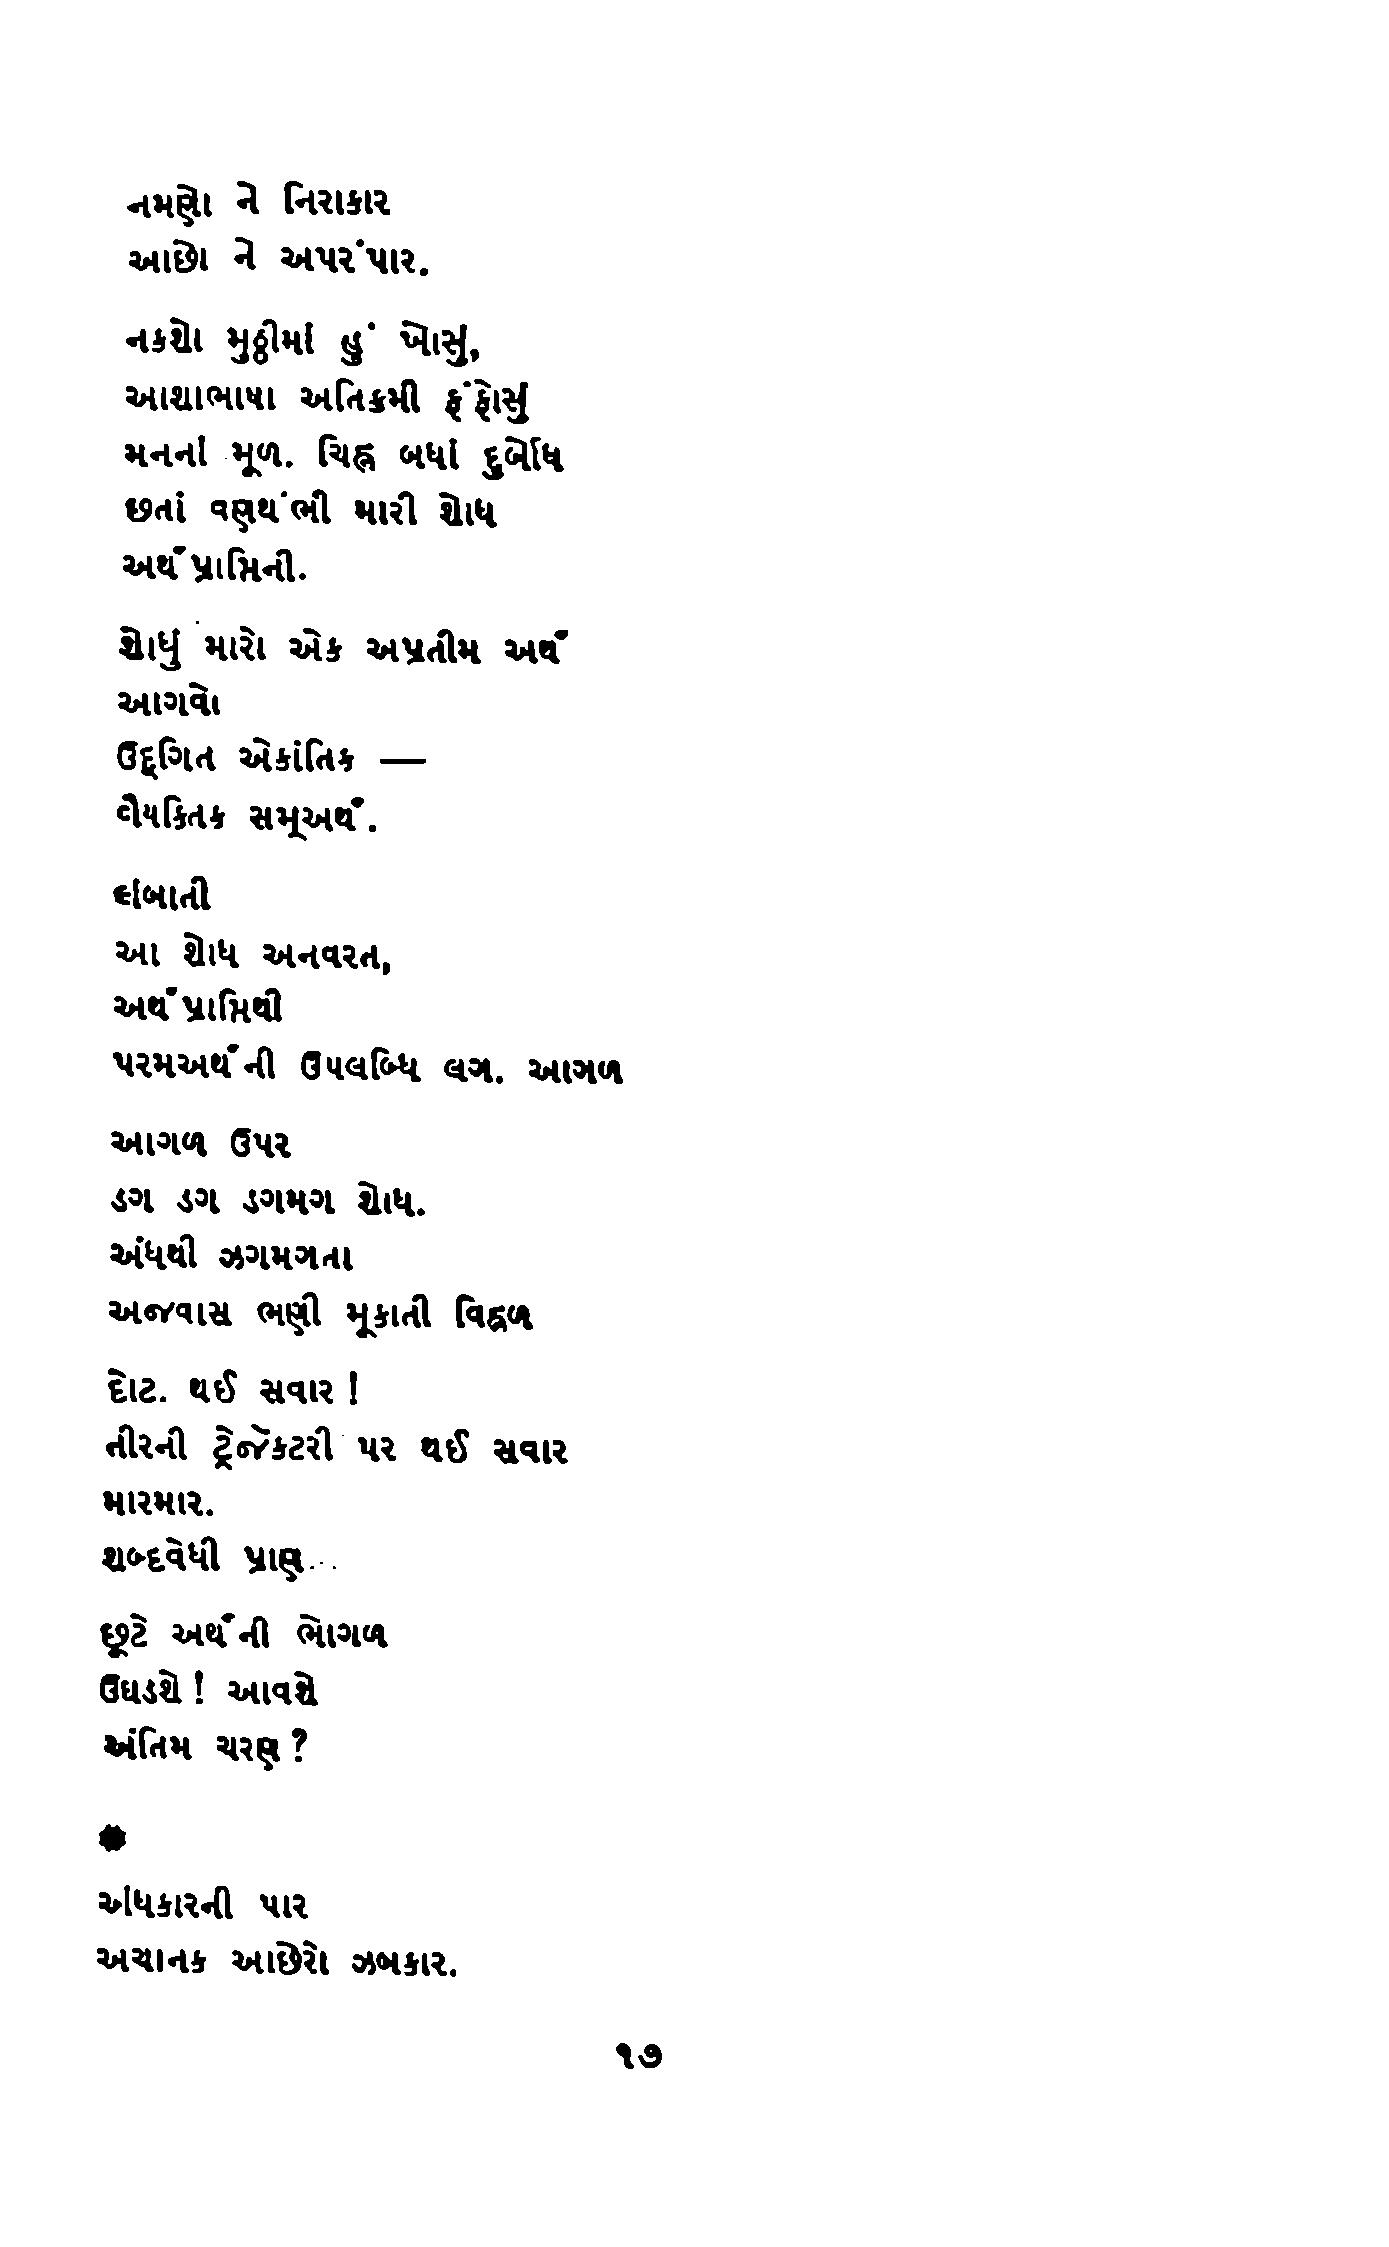 નમણો ને નિરાકાર
આછો ને અપરંપાર.
નકશો મુઠ્ઠીમાં હું ખોસું,
આશાભાષા અતિક્રમી ફંફોસું
મનનાં મૂળ. ચિહ્ન બધાં દુર્બોધ
છતાં વણથંભી મારી શોધ
અર્થપ્રાપ્તિની.
શોધું મારો એક અપ્રતીમ અર્થ
આગવો
ઉદ્દગિત એકાંતિક —
વૈયક્તિક સમૂઅર્થ.
લાંબાતી
આ શોધ અનવરત,
અર્થપ્રાપ્તિથી
પરમઅર્થની ઉપલબ્ધિ લગ. આગળ
આગળ ઉપર
ડગ ડગ ડગમગ શોધ.
અંધથી ઝગમગતા
અજવાસ ભણી મૂકાતી વિહ્વળ
દોટ. થઈ સવાર !
તીરની ટ્રેજેક્ટરી પર થઈ સવાર
મારમાર.
શબ્દવેધી પ્રાણ...
છૂટે અર્થની ભોગળ
ઉઘડશે ! આવશે
અંતિમ ચરણ ?
અંધકારની પાર
અચાનક આછેરો ઝબકાર.
૧૭